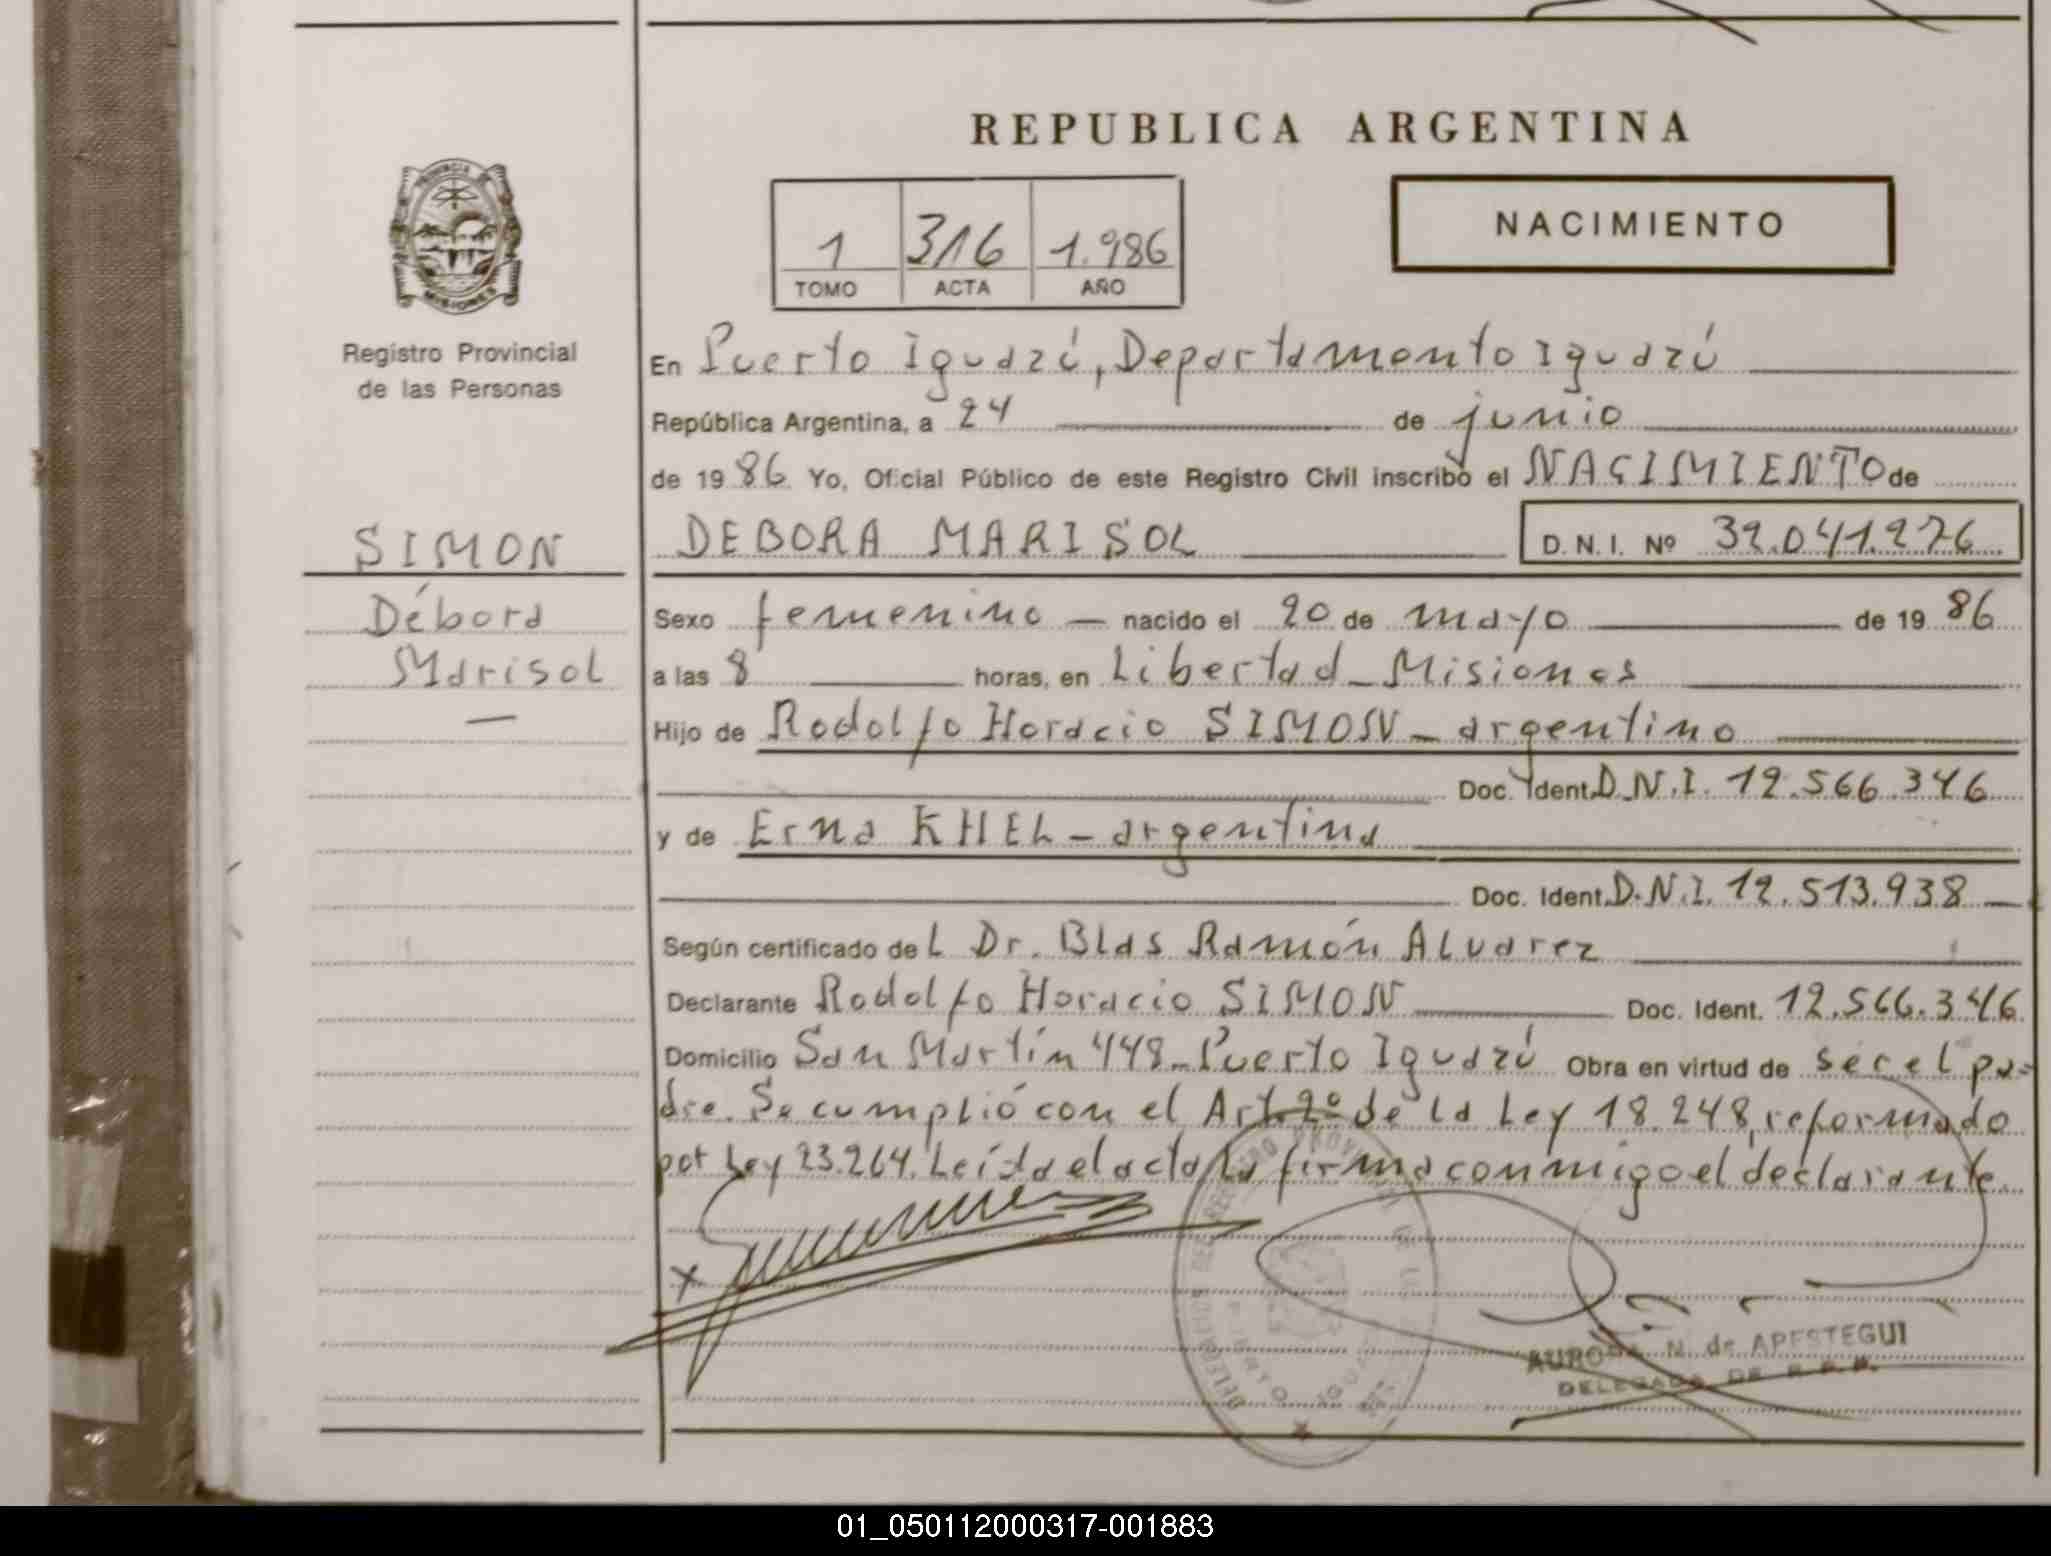 REPUBLICA ARGENTINA
PROVINCIA DE
MISIONES
Registro Provincial
de las Personas
1 316 1.986
TOMO ACTA AÑO
NACIMIENTO
En Puerto Iguazú, Departamento Iguazú
República Argentina, a 24 de junio
de 19 86 Yo, Oficial Público de este Registro Civil inscribo el NACIMIENTO de
SIMON
DEBORA MARISOL D.N.I. Nº 32.041.276
Débora
Marisol
Sexo femenino — nacido el 20 de mayo de 19 86
a las 8 horas, en Libertad - Misiones
Hijo de Rodolfo Horacio SIMON - argentino
Doc. Ident. D.N.I. 12.566.346
y de Erna KHEL - argentina
Doc. Ident. D.N.I. 12.513.938
Según certificado del Dr. Blas Ramón Alvarez
Declarante Rodolfo Horacio SIMON Doc. Ident. 12.566.346
Domicilio San Martín 448 - Puerto Iguazú Obra en virtud de ser el pa=
dre. Se cumplió con el Art. 2º de la Ley 18.248, reformado
por Ley 23.264. Leída el acta la firma conmigo el declarante.
X
AURORA N. de APESTEGUI
DELEGADA DE R.P.P.
01_050112000317-001883